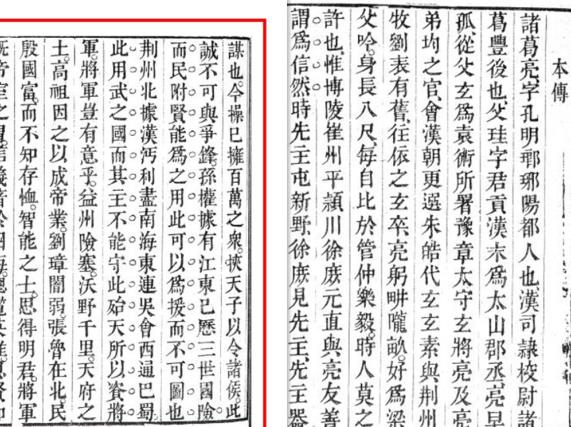 本傳
諸葛亮字孔明瑯琊陽都人也漢司隸校尉諸
葛豐後也父珪字君貢漢末為太山郡丞亮早
孤從父玄為袁術所署豫章太守玄將亮及亮
弟均之官會漢朝更選朱皓代玄玄素與荊州
牧劉表有舊往依之玄卒亮躬畊隴畝好為梁
父吟身長八尺每自比於管仲樂毅時人莫之
許也惟博陵崔州平潁川徐庶元直與亮友善
謂為信然時先主屯新野徐庶見先主先主器
謀也今操已擁百萬之衆挾天子以令諸侯此
誠不可與爭鋒孫權據有江東已歷三世國險
而民附賢能為之用此可以為援而不可圖也
荊州北據漢沔利盡南海東連吳會西通巴蜀
此用武之國而其主不能守此殆天所以資將
軍將軍豈有意乎益州險塞沃野千里天府之
土高祖因之以成帝業劉璋闇弱張魯在北民
殷國富而不知存恤智能之士思得明君將軍